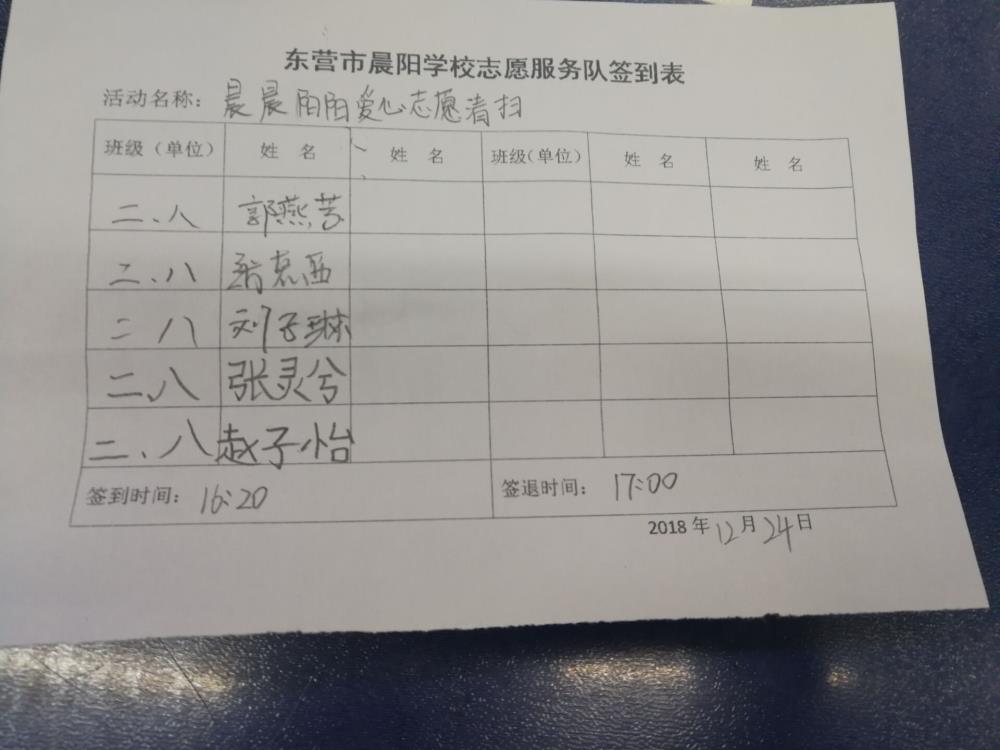 东营市晨阳学校志愿服务队签到表
活动名称：晨晨阳阳爱心志愿清扫
班级（单位） 姓 名 姓 名 班级（单位） 姓 名 姓 名
二、八 郭燕芳
二、八
二 八 刘子琳
二、八 张灵兮
二、八 赵子怡
签到时间：16:20 签退时间：17:00
2018年12月24日